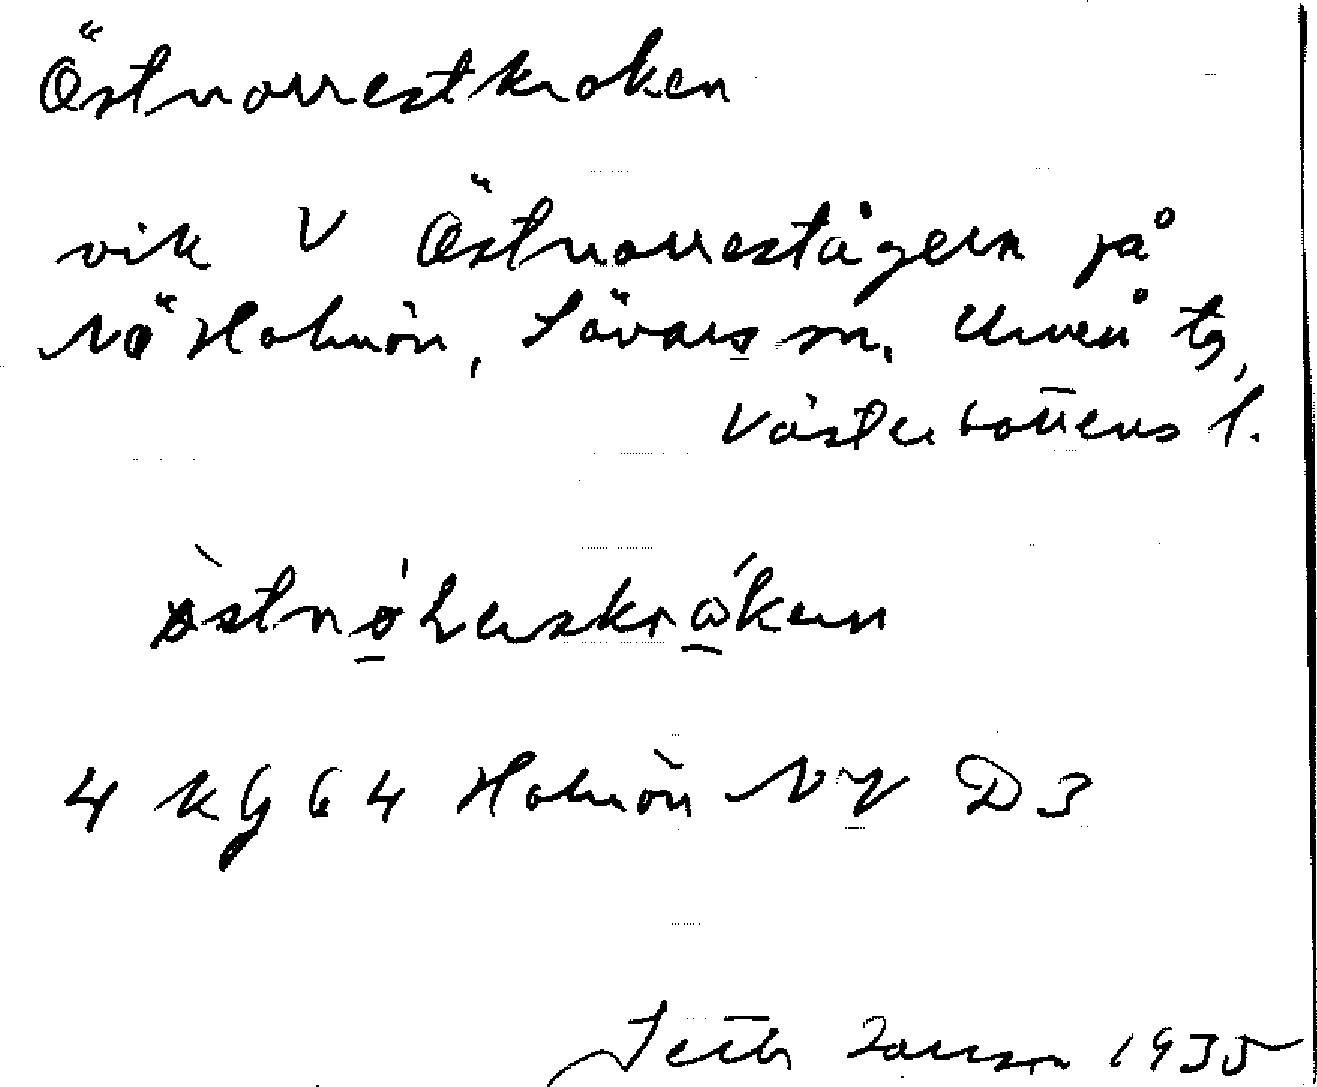 Östnorrestkroken
vik V Östnorrestågern på
NÖ Holmön, Sävars sn, Umeå tg,
Västerbottens l.
4 kg 64 Holmön NV D3
1935